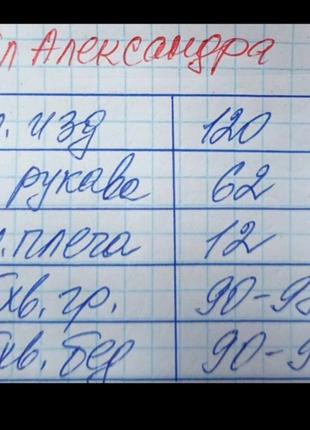 л Александра
. изд 120
рукава 62
. плеча 12
хв. гр. 90-9
хв. бед 90-9